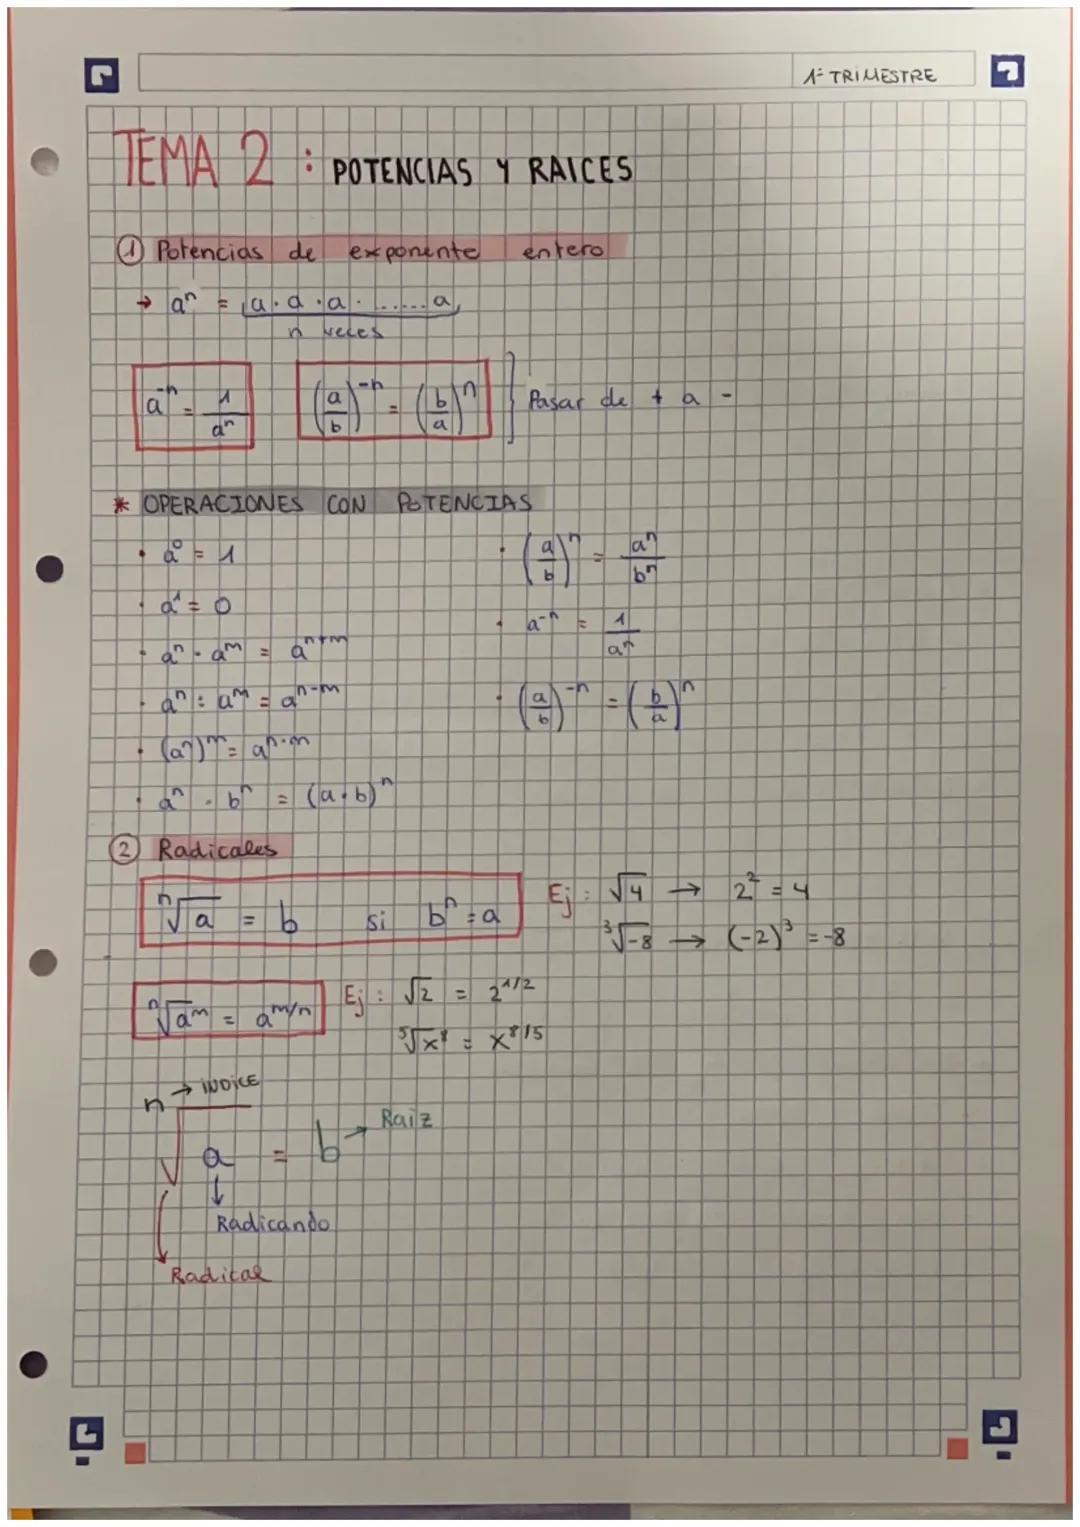 1º TRIMESTRE
TEMA 2 : POTENCIAS Y RAICES
① Potencias de exponente entero
→ aⁿ = a·a·a·......a
n veces
a⁻ⁿ = 1/aⁿ   (a/b)⁻ⁿ = (b/a)ⁿ } Pasar de + a -
* OPERACIONES CON POTENCIAS
· a⁰ = 1
· a¹ = 0
· aⁿ · aᵐ = aⁿ⁺ᵐ
· aⁿ : aᵐ = aⁿ⁻ᵐ
· (aⁿ)ᵐ = aⁿ·ᵐ
· aⁿ · bⁿ = (a·b)ⁿ
· (a/b)ⁿ = aⁿ/bⁿ
· a⁻ⁿ = 1/aⁿ
· (a/b)⁻ⁿ = (b/a)ⁿ
② Radicales
ⁿ√a = b si bⁿ = a
Ej : √4 → 2² = 4
³√-8 → (-2)³ = -8
ⁿ√aᵐ = a^m/n
Ej : √2 = 2^1/2
⁵√x⁸ = x^8/5
n → INDICE
√a = b → Raiz
Radicando
Radical